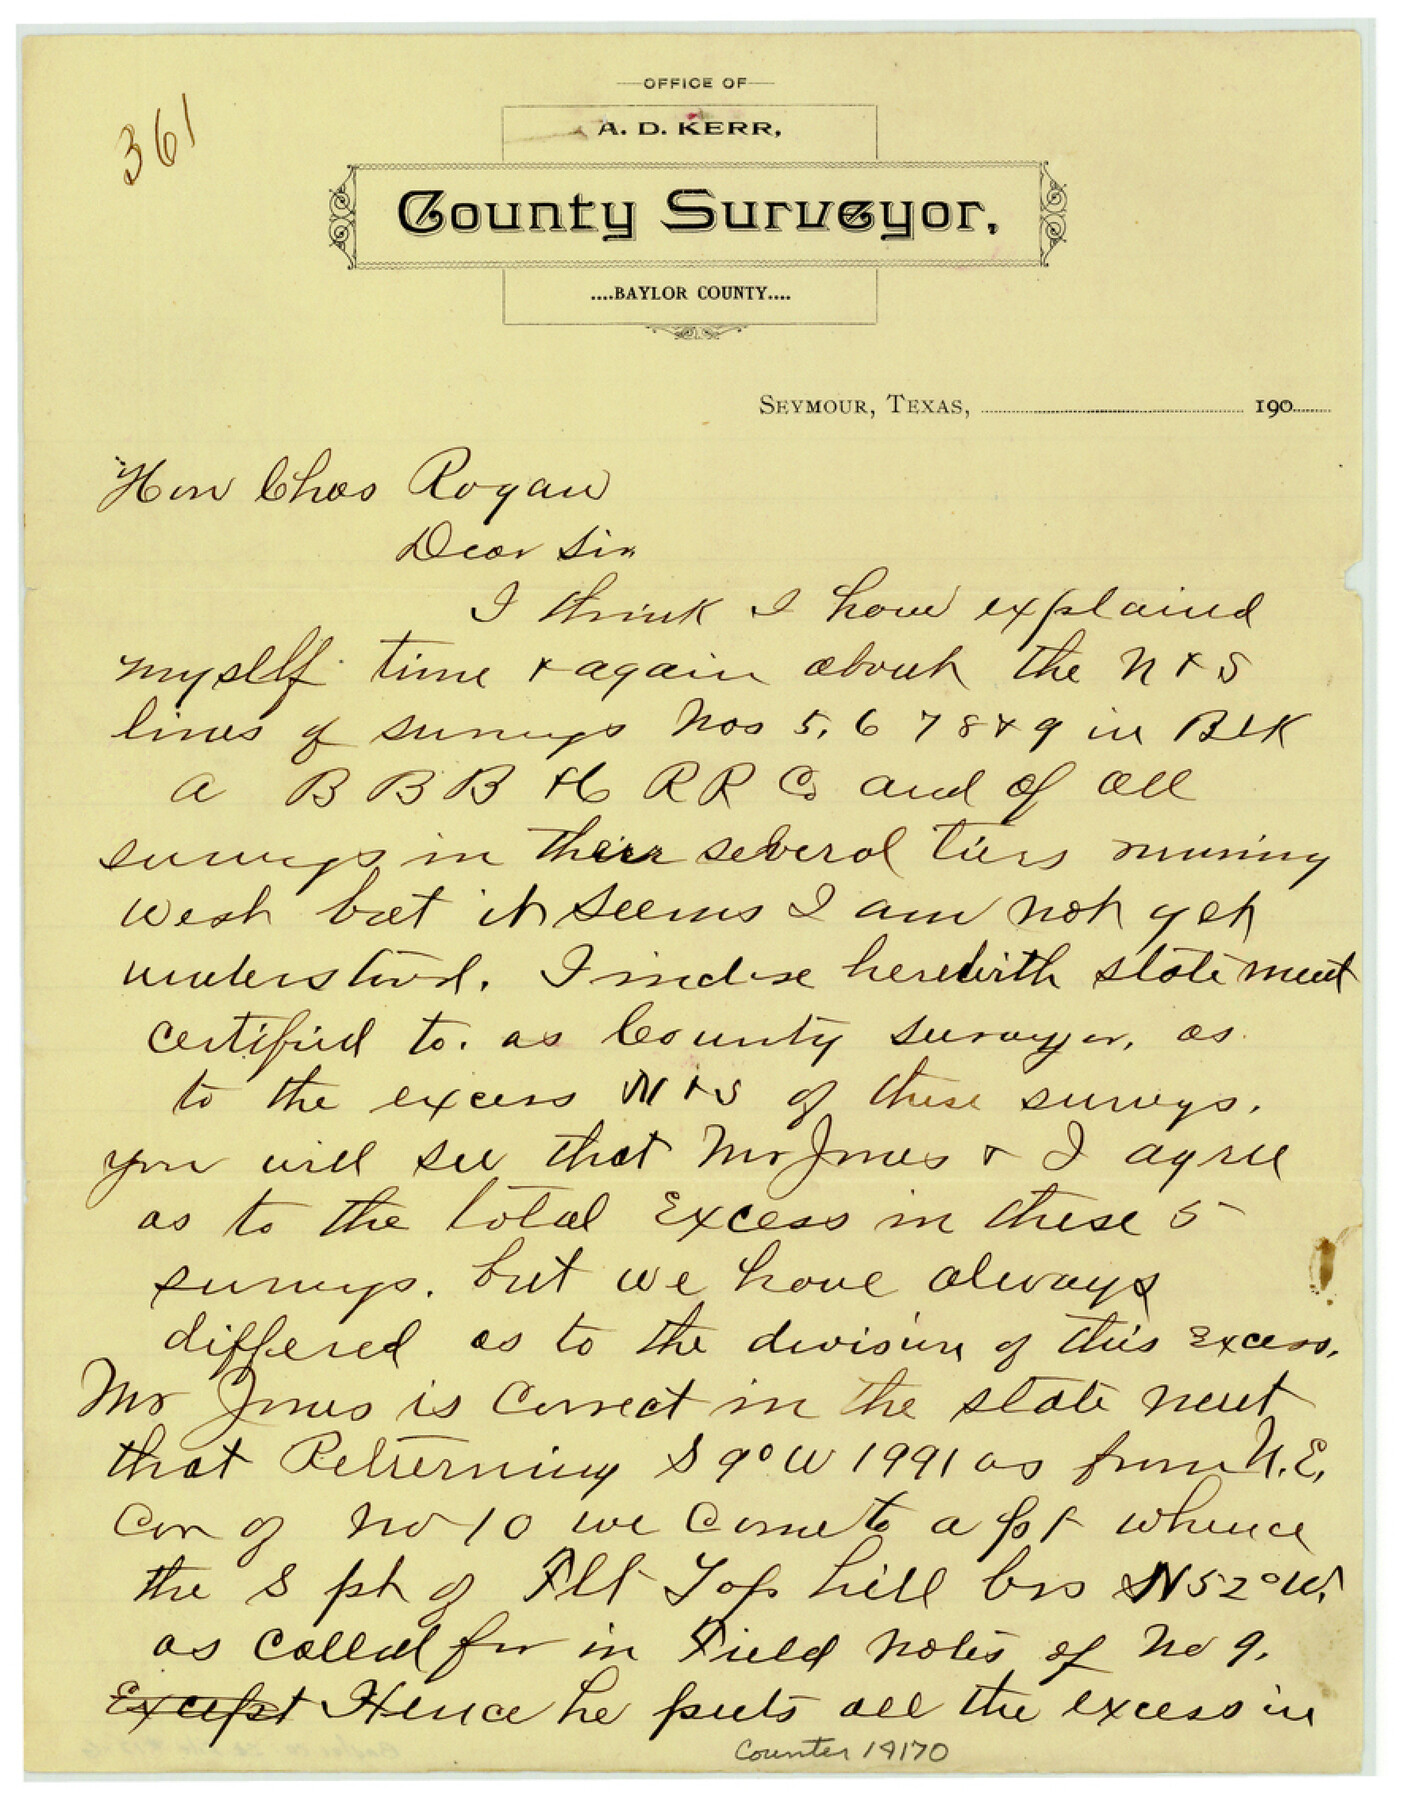 361
OFFICE OF
A. D. KERR,
County Surveyor,
....BAYLOR COUNTY....
SEYMOUR, TEXAS, 190
Hon Chas Rogan
Dear Sir
I think I have explained
myself time & again about the N & S
lines of surveys Nos 5, 6 7 8 & 9 in Blk
A B B B & C RR Co and of all
surveys in their several tiers running
West but it seems I am not yet
understood. I inclose herewith statement
certified to. as County surveyor, as
to the excess N & S of these surveys.
you will see that Mr Jones & I agree
as to the total Excess in these 5
surveys. but we have always
differed as to the division of this Excess.
Mr Jones is Correct in the statement
that Retrerning S 9° W 1991 as from N.E.
Cor of No 10 we Come to a pt whence
the S pt of Flt Top hill brs N 52° W.
as called for in Field notes of No 9.
Except Hence he puts all the excess in
Counter 14170